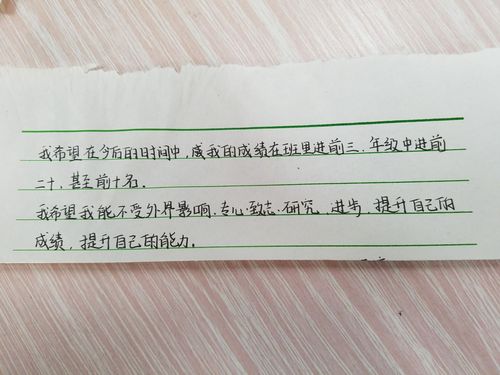 我希望在今后的时间中,成我的成绩在班里进前三.年级中进前
二十,甚至前十名.
我希望我能不受外界影响.专心致志.研究 进步.提升自己的
成绩,提升自己的能力.